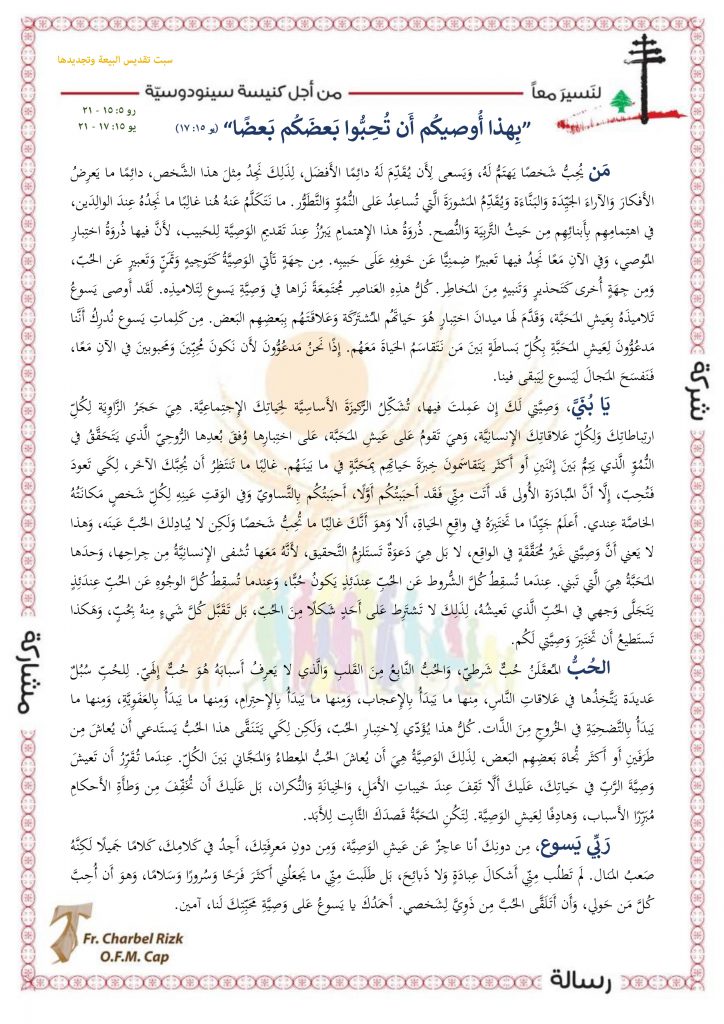 سبت تقديس البيعة وتجديدها
لنَسيرَ معاً
من أجل كنيسة سينودوسيّة
رو ٥: ١٥ - ٢١
يو ١٥: ١٧ - ٢١
"بِهذا أُوصيكُم أَن تُحِبُّوا بَعضَكُم بَعضًا" (يو ١٥: ١٧)
مَن يُحِبُّ شَخصًا يَهتَمُّ لَهُ، وَيَسعى لِأَن يُقَدِّمَ لَهُ دائِمًا الأَفضَل، لِذَلِكَ نَجِدُ مِثلَ هذا الشَّخص، دائِمًا ما يَعرِضُ
الأَفكارَ والآراءَ الجَيِّدَة وَالبَنَّاءَة وَيُقَدِّمُ المَشورَةَ الَّتي تُساعِدُ عَلى النُّمُوِّ وَالتَّطَوُّر. ما نَتَكَلَّمُ عَنهُ هُنا غالِبًا ما نَجِدُهُ عِندَ الوالِدَين،
في اهتِمامِهِم بِأَبنائِهِم مِن حَيثُ التَّربِيَة وَالنُّصح. ذُروَةُ هذا الإِهتِمام يَبرُزُ عِندَ تَقديمِ الوَصِيَّة لِلحَبيب، لأَنَّ فيها ذُروَةُ اختِبارِ
المُوصي، وَفي الآنِ مَعًا نَجِدُ فيها تَعبيرًا ضِمنِيًّا عَن خَوفِهِ عَلَى حَبيبِه. مِن جِهَةٍ تَأتي الوَصِيَّةُ كَتَوجيهٍ وَتَمَنٍّ وَتَعبيرٍ عَن الحُبّ،
وَمِن جِهَةٍ أُخرى كَتَحذيرٍ وَتَنبيهٍ مِنَ المَخاطِر. كُلُّ هذِهِ العَناصِر مُجتَمِعَةً نَراها في وَصِيَّةِ يَسوع لِتَلاميذِه. لَقَد أَوصى يَسوعُ
تَلاميذَهُ بِعَيشِ المَحَبَّة، وَقَدَّمَ لَها ميدانَ اختِبارٍ هُوَ حَياتُهُم المُشتَرَكَة وَعَلاقَتَهُم بِبَعضِهِم البَعض. مِن كَلِماتِ يَسوع نُدرِكُ أَنَّنا
مَدعُوُّونَ لِعَيشِ المَحَبَّةِ بِكُلِّ بَساطَةٍ بَينَ مَن نَتَقاسَمُ الحَياةَ مَعَهُم. إِذًا نَحنُ مَدعُوُّونَ لأَن نَكونَ مُحِبّينَ وَمَحبوبينَ في الآنِ مَعًا،
فَنَفسَحَ المَجالَ لِيَسوع لِيَبقى فينا.
يَا بُنَيَّ، وَصِيَّتي لَكَ إِن عَمِلتَ فيها، تُشَكِّلُ الرَّكيزَةَ الأَساسِيَّة لِحَياتِكَ الإِجتِماعِيَّة. هِيَ حَجَرُ الزَّاوِيَة لِكُلِّ
ارتِباطاتِكَ وَلِكُلِّ عَلاقاتِكَ الإِنسانِيَّة، وَهيَ تَقومُ عَلى عَيشِ المَحَبَّة، عَلى اختِبارِها وُفقَ بُعدِها الرُّوحِيِّ الَّذي يَتَحَقَّقُ في
النُّمُوِّ الَّذي يَتِمُّ بَينَ إِثنَينِ أَو أَكثَر يَتَقاسَمونَ خِبرَةَ حَياتِهِم بِمَحَبَّةٍ في ما بَينَهُم. غالِبًا ما تَنتَظِرُ أَن يُحِبَّكَ الآخَر، لِكَي تَعودَ
فَتُحِبّ، إِلَّا أَنَّ المُبادَرَةَ الأُولى قَد أَتَت مِنّي فَقَد أَحبَبتُكُم أَوَّلًا، أَحبَبتُكُم بِالتَّساوي وَفي الوَقتِ عَينِهِ لِكُلِّ شَخصٍ مَكانَتُهُ
الخاصَّة عِندي. أَعلَمُ جَيِّدًا ما تَختَبِرَهُ في واقِعِ الحَياةِ، أَلا وَهوَ أَنَّكَ غالِبًا ما تُحِبُّ شَخصًا وَلَكِن لا يُبادِلكَ الحُبَّ عَينَه، وَهذا
لا يَعني أَنَّ وَصِيَّتي غَيرُ مُحَقَّقَةٍ في الواقِع، لا بَل هِيَ دَعوَةٌ تَستَلزِمُ التَّحقيق، لأَنَّهُ مَعَها تُشفى الإِنسانِيَّةُ مِن جِراحِها، وَحدَها
المَحَبَّةُ هِيَ الَّتي تَبني. عِندَما تُسقِطُ كُلَّ الشُّروط عَنِ الحُبِّ عِندَئِذٍ يَكونُ حُبًّا، وَعِندَما تُسقِطُ كُلَّ الوجُوهِ عَن الحُبِّ عِندَئِذٍ
يَتَجَلَّى وَجهي في الحُبِّ الَّذي تَعيشُهُ، لِذَلِكَ لا تَشتَرِط عَلى أَحَدٍ شَكلًا مِنَ الحُبّ، بَل تَقَبَّل كُلَّ شَيءٍ مِنهُ بِحُبٍّ، وَهَكَذا
تَستَطيعُ أَن تَختَبِرَ وَصِيَّتي لَكُم.
الحُبُّ المُعَقلَنُ حُبٌّ شَرطِيّ، وَالحُبُّ النَّابِعُ مِنَ القَلبِ وَالَّذي لا يَعرِفُ أَسبابَهُ هُوَ حُبٌّ إِلَهِيّ. لِلحُبِّ سُبُلٌ
عَديدَة يَتَّخِذُها في عَلاقاتِ النَّاس، مِنها ما يَبدَأُ بِالإِعجاب، وَمِنها ما يَبدَأُ بِالإِحتِرام، وَمِنها ما يَبدَأُ بِالعَفَوِيَّةِ، وَمِنها ما
يَبدَأُ بِالتَّضحِيَةِ في الخُروجِ مِنَ الذَّات. كُلُّ هذا يُؤَدّي لِاختِبارِ الحُبّ، وَلَكِن لِكَي يَتَنَقَّى هذا الحُبُّ يَستَدعي أَن يُعاشَ مِن
طَرَفَينِ أَو أَكثَر تُجاهَ بَعضِهِم البَعض، لِذَلِكَ الوَصِيَّة هِيَ أَن يُعاشَ الحُبُّ المِعطاءُ وَالمَجَّاني بَينَ الكُلّ. عِندَما تُقَرِّرُ أَن تَعيشَ
وَصِيَّةَ الرَّبّ في حَياتِكَ، عَلَيكَ أَلَّا تَقِفَ عِندَ خَيباتِ الأَمَل، وَالخِيانَةِ وَالنُّكران، بَل عَلَيكَ أَن تُخَفِّفَ مِن وَطأَةِ الأَحكامِ
مُبَرِّرًا الأَسباب، وَهادِفًا لِعَيشِ الوَصِيَّة. لِتَكُنِ المَحَبَّةُ قَصدَكَ الثَّابِت لِلأَبَد.
رَبِّي يَسوع، مِن دونِكَ أَنا عاجِزٌ عَن عَيشِ الوَصِيَّة، وَمِن دونِ مَعرِفَتِكَ، أَجِدُ في كَلامِكَ، كَلامًا جَميلًا لَكِنَّهُ
صَعبُ المَنال. لَم تَطلُب مِنّي أَشكالَ عِبادَةٍ وَلا ذَبائِحَ، بَل طَلَبتَ مِنّي ما يَجعَلُني أَكثَرَ فَرَحًا وَسُرورًا وَسَلامًا، وَهوَ أَن أُحِبَّ
كُلَّ مَن حَولي، وَأَن أَتَلَقَّى الحُبَّ مِن ذَوِيَّ لِشَخصي. أَحمَدُكَ يا يَسوعُ عَلى وَصِيَّةِ مَحَبَّتِكَ لَنا، آمين.
شركة
مشاركة
Fr. Charbel Rizk
O.F.M. Cap
رسالة